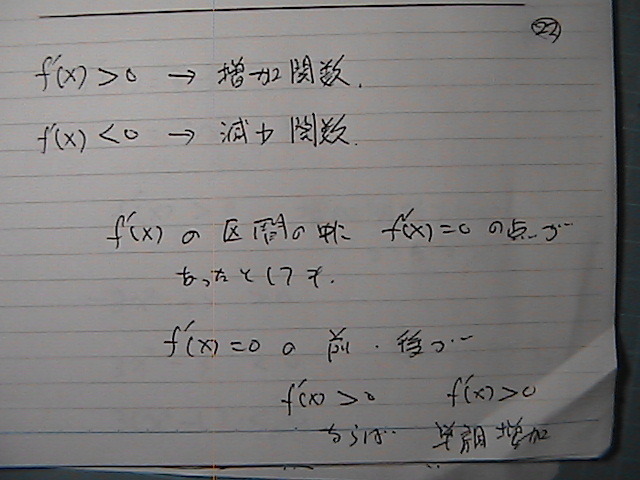 ㉒
f'(x) > 0 → 増加関数.
f'(x) < 0 → 減少関数.
f'(x) の区間の中に f'(x)=0 の点が
あったとしても.
f'(x)=0 の前・後が
f'(x) > 0 f'(x) > 0
ならば 単調増加